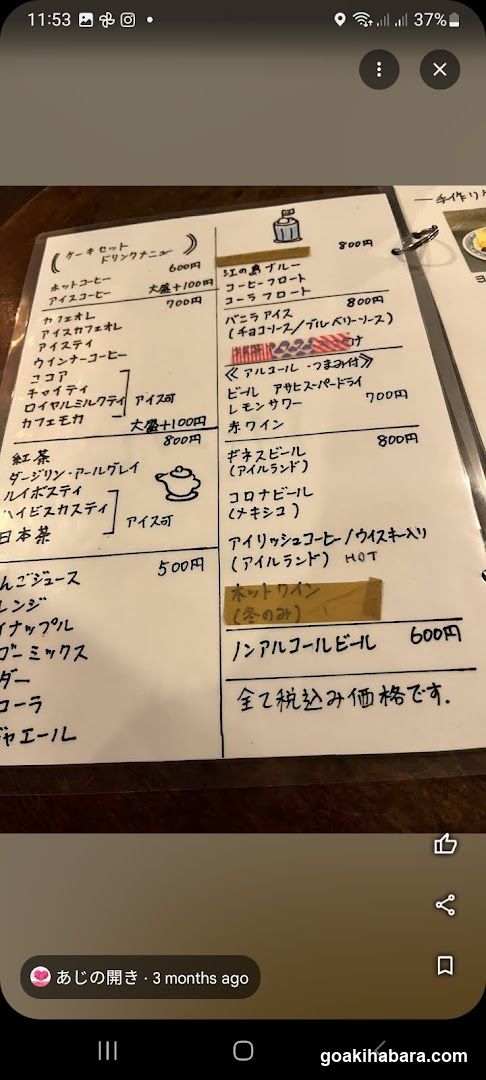 11:53
37%
ケーキセット
ドリンクメニュー
ホットコーヒー 600円
アイスコーヒー 大盛+100円
700円
カフェオレ
アイスカフェオレ
アイスティ
ウインナーコーヒー
ココア
チャイティ
ロイヤルミルクティ アイス可
カフェモカ
大盛+100円
800円
紅茶
ダージリン・アールグレイ
ルイボスティ
ハイビスカスティ アイス可
日本茶
500円
んごジュース
レンジ
イナップル
ゴーミックス
ダー
コーラ
ジャエール
800円
江の島ブルー
コーヒーフロート
コーラフロート
800円
バニラアイス
(チョコソース/ブルーベリーソース)
け
≪アルコール・つまみ付≫
ビール アサヒスーパードライ
レモンサワー 700円
赤ワイン
800円
ギネスビール
(アイルランド)
コロナビール
(メキシコ)
アイリッシュコーヒー/ウイスキー入り
(アイルランド) HOT
ホットワイン
(冬のみ)
ノンアルコールビール 600円
全て税込み価格です.
一手作り
あじの開き · 3 months ago
goakihabara.com